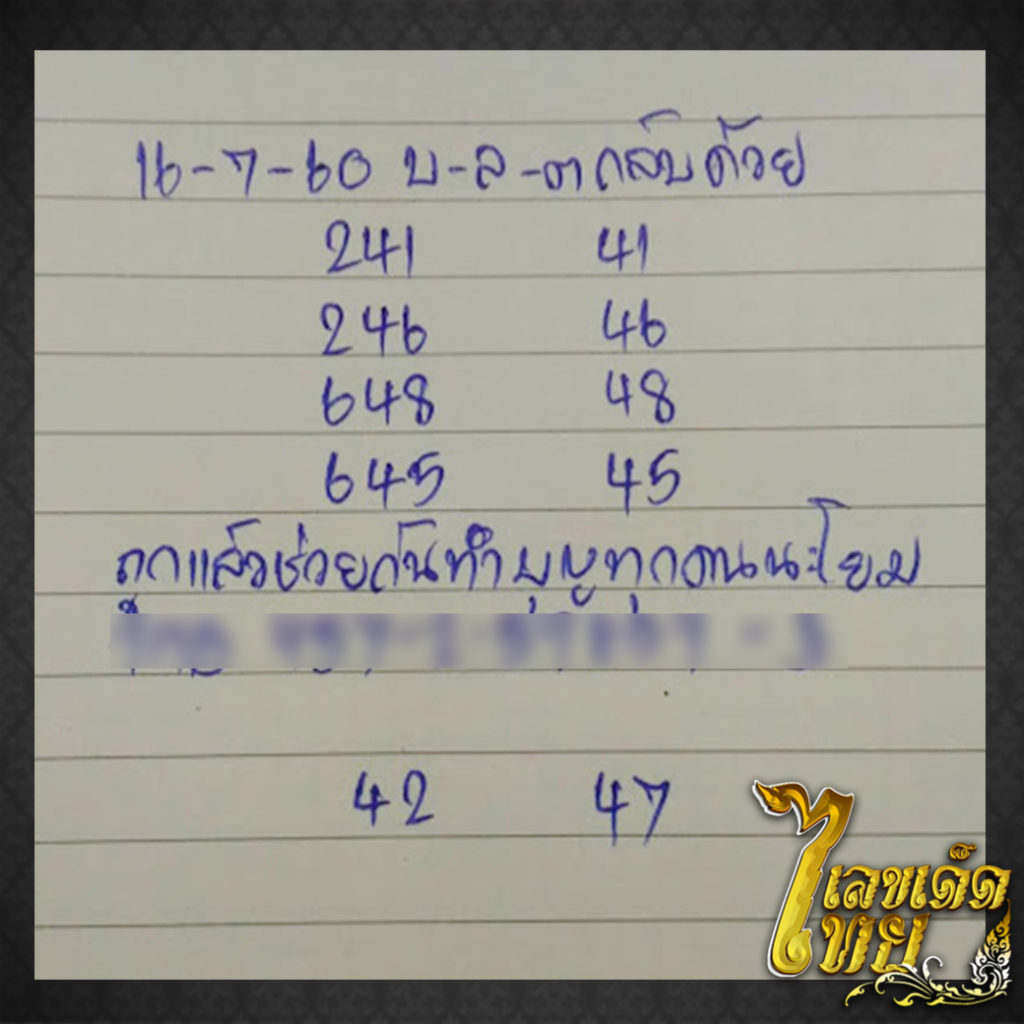 16-7-60 บ-ล-ต กลับด้วย
241 41
246 46
648 48
645 45
ถูกแล้วช่วยกันทำบุญทุกคนนะโยม
42 47
เลขเด็ด
ไทย